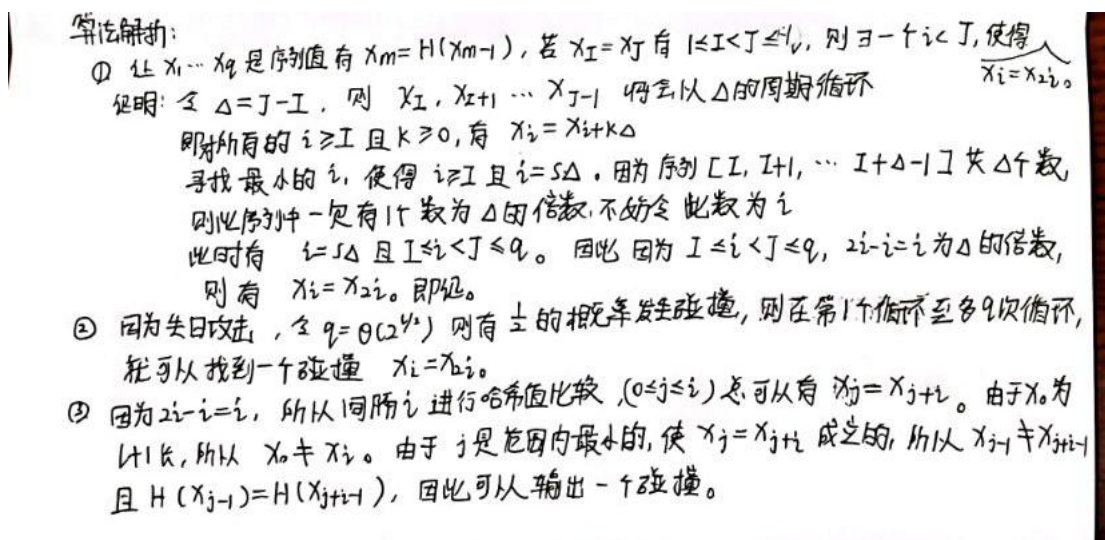 算法解析:
① 让 x₁…x_q 是序列值有 x_m=H(x_{m-1}), 若 x_I=x_J 有 1≤I<J≤q, 则∃一个i<J, 使得 x_i=x_{2i}。
证明: 令 Δ=J-I, 则 x_I, x_{I+1} … x_{J-1} 将会以Δ的周期循环
即对所有的 i≥I 且 k≥0, 有 x_i=x_{i+kΔ}
寻找最小的 i, 使得 i≥I 且 i=sΔ。因为序列 [I, I+1, … I+Δ-1] 共Δ个数,
则此序列中一定有1个数为Δ的倍数, 不妨令此数为 i
此时有 i=sΔ 且 I≤i<J≤q。因此 因为 I≤i<J≤q, 2i-i=i为Δ的倍数,
则有 x_i=x_{2i}。即证。
② 因为生日攻击, 令 q=Θ(2^{l/2}) 则有 1/2 的概率发生碰撞, 则在第1个循环至多q次循环,
就可以找到一个碰撞 x_i=x_{2i}。
③ 因为2i-i=i, 所以间隔i进行哈希值比较, (0≤j≤i) 总可以有 x_j=x_{j+i}。由于x₀为
l+1长, 所以 x₀≠x_i。由于 j是范围内最小的, 使 x_j=x_{j+i} 成立的, 所以 x_{j-1}≠x_{j+i-1}
且 H(x_{j-1})=H(x_{j+i-1}), 因此可以输出一个碰撞。